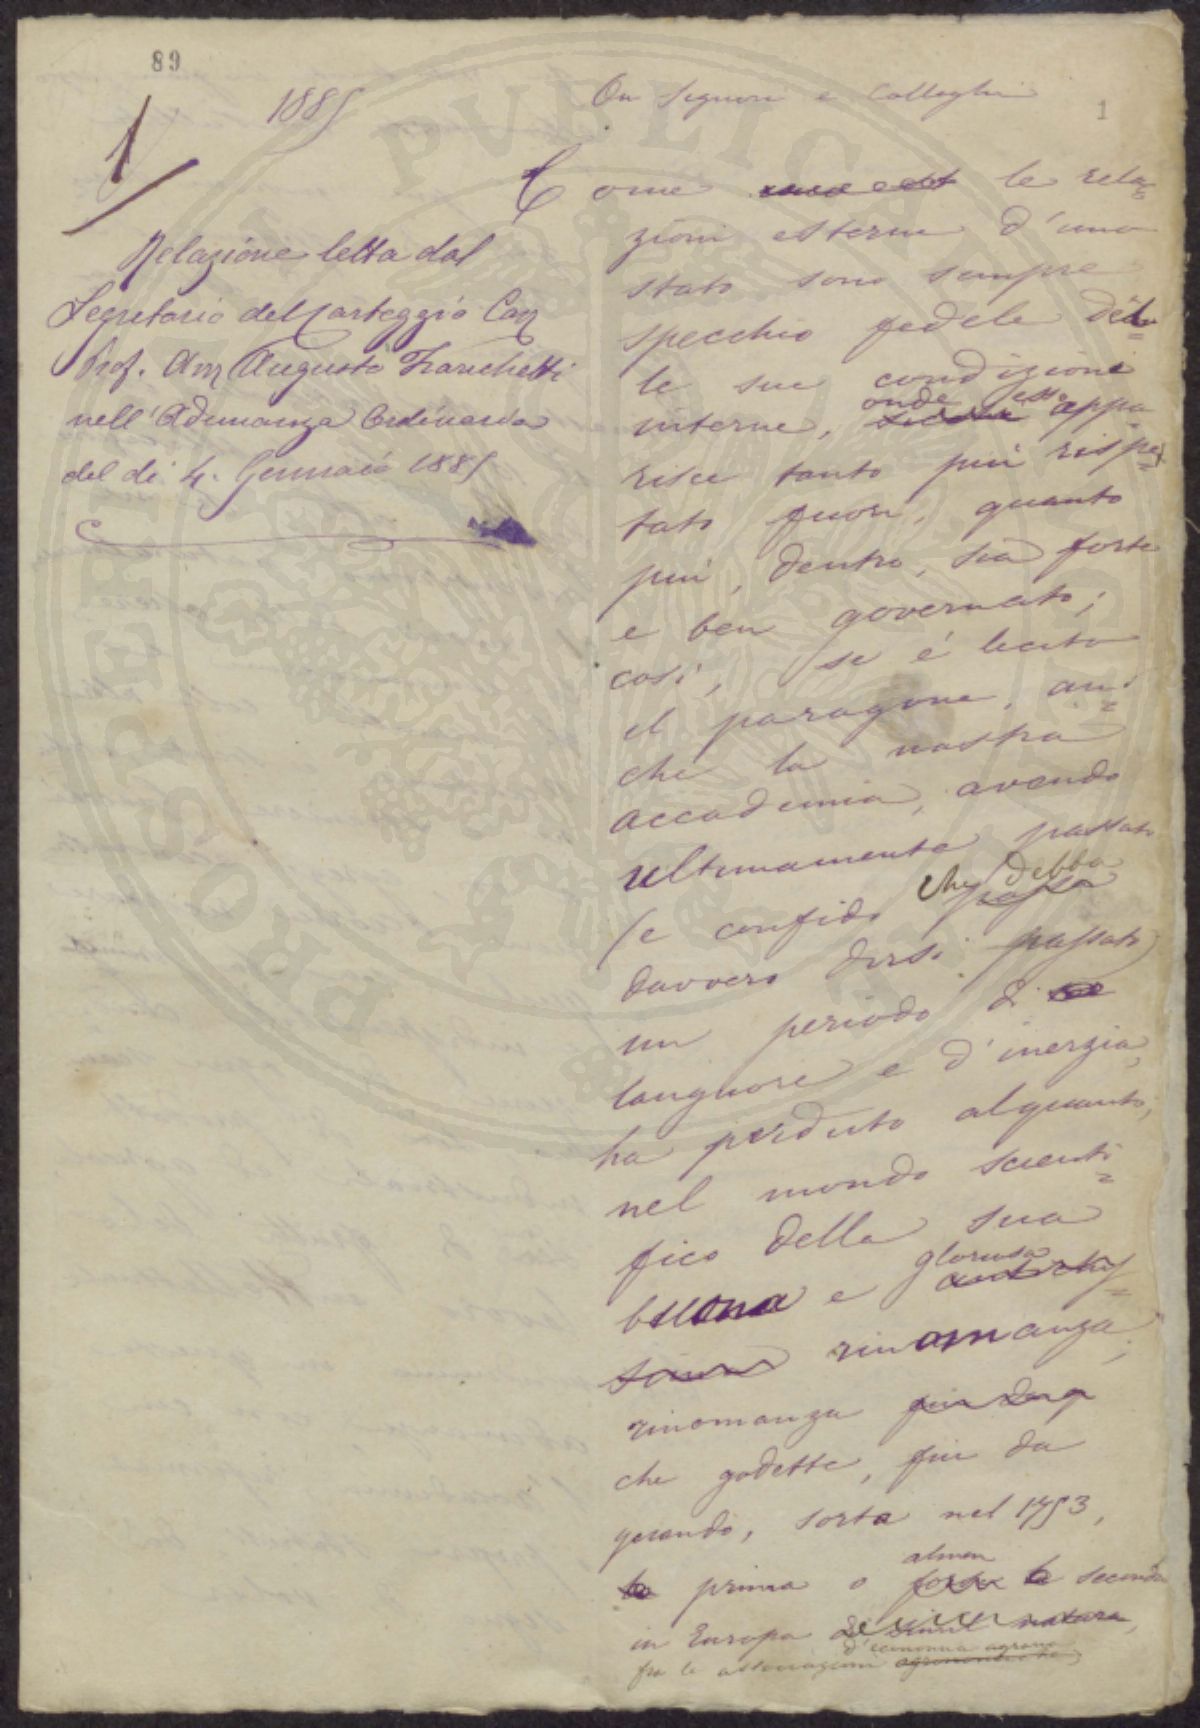 89
1
1
1885
Relazione letta dal
Segretario del Carteggio Cav
Prof. Avv Augusto Franchetti
nell'Adunanza Ordinaria
del di 4. Gennaio 1885
On Signori e Colleghi
Come le rela=
zioni esterne d'uno
stato sono sempre
specchio fedele del=
le sue condizioni
interne, onde esso appa
risce tanto più rispet=
tato fuori, quanto
più, dentro, sia forte
e ben governato;
così, se è lecito
il paragone, an=
che la nostra
accademia, avendo
ultimamente passato
(e confido che debba possa
davvero dirsi passato)
un periodo di
languore e d'inerzia,
ha perduto alquanto,
nel mondo scienti=
fico della sua
buona e gloriosa
rinomanza;
rinomanza
che godette, fin da
quando, sorta nel 1753,
la prima o almen forse la seconda
in Europa di simil natura,
fra le associazioni d'economia agraria
PROSPERITATI PUBLICAE